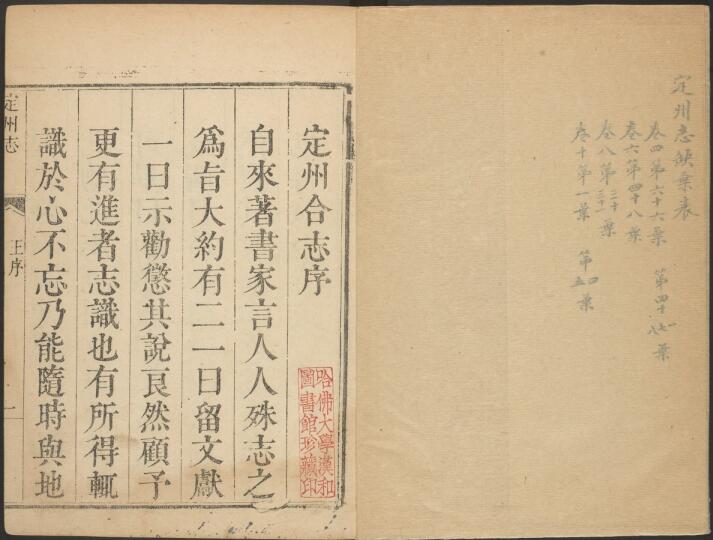 定州志缺葉表
卷四第六十六葉 第四十七八葉
卷六第四十八葉
卷八第三十葉
卷十第一葉 第四五葉
定州合志序
哈佛大學漢和
圖書館珍藏印
自來著書家言人人殊志之
爲旨大約有二一曰留文獻
一曰示勸懲其說良然顧予
更有進者志識也有所得輒
識於心不忘乃能隨時與地
定州志 王序 一